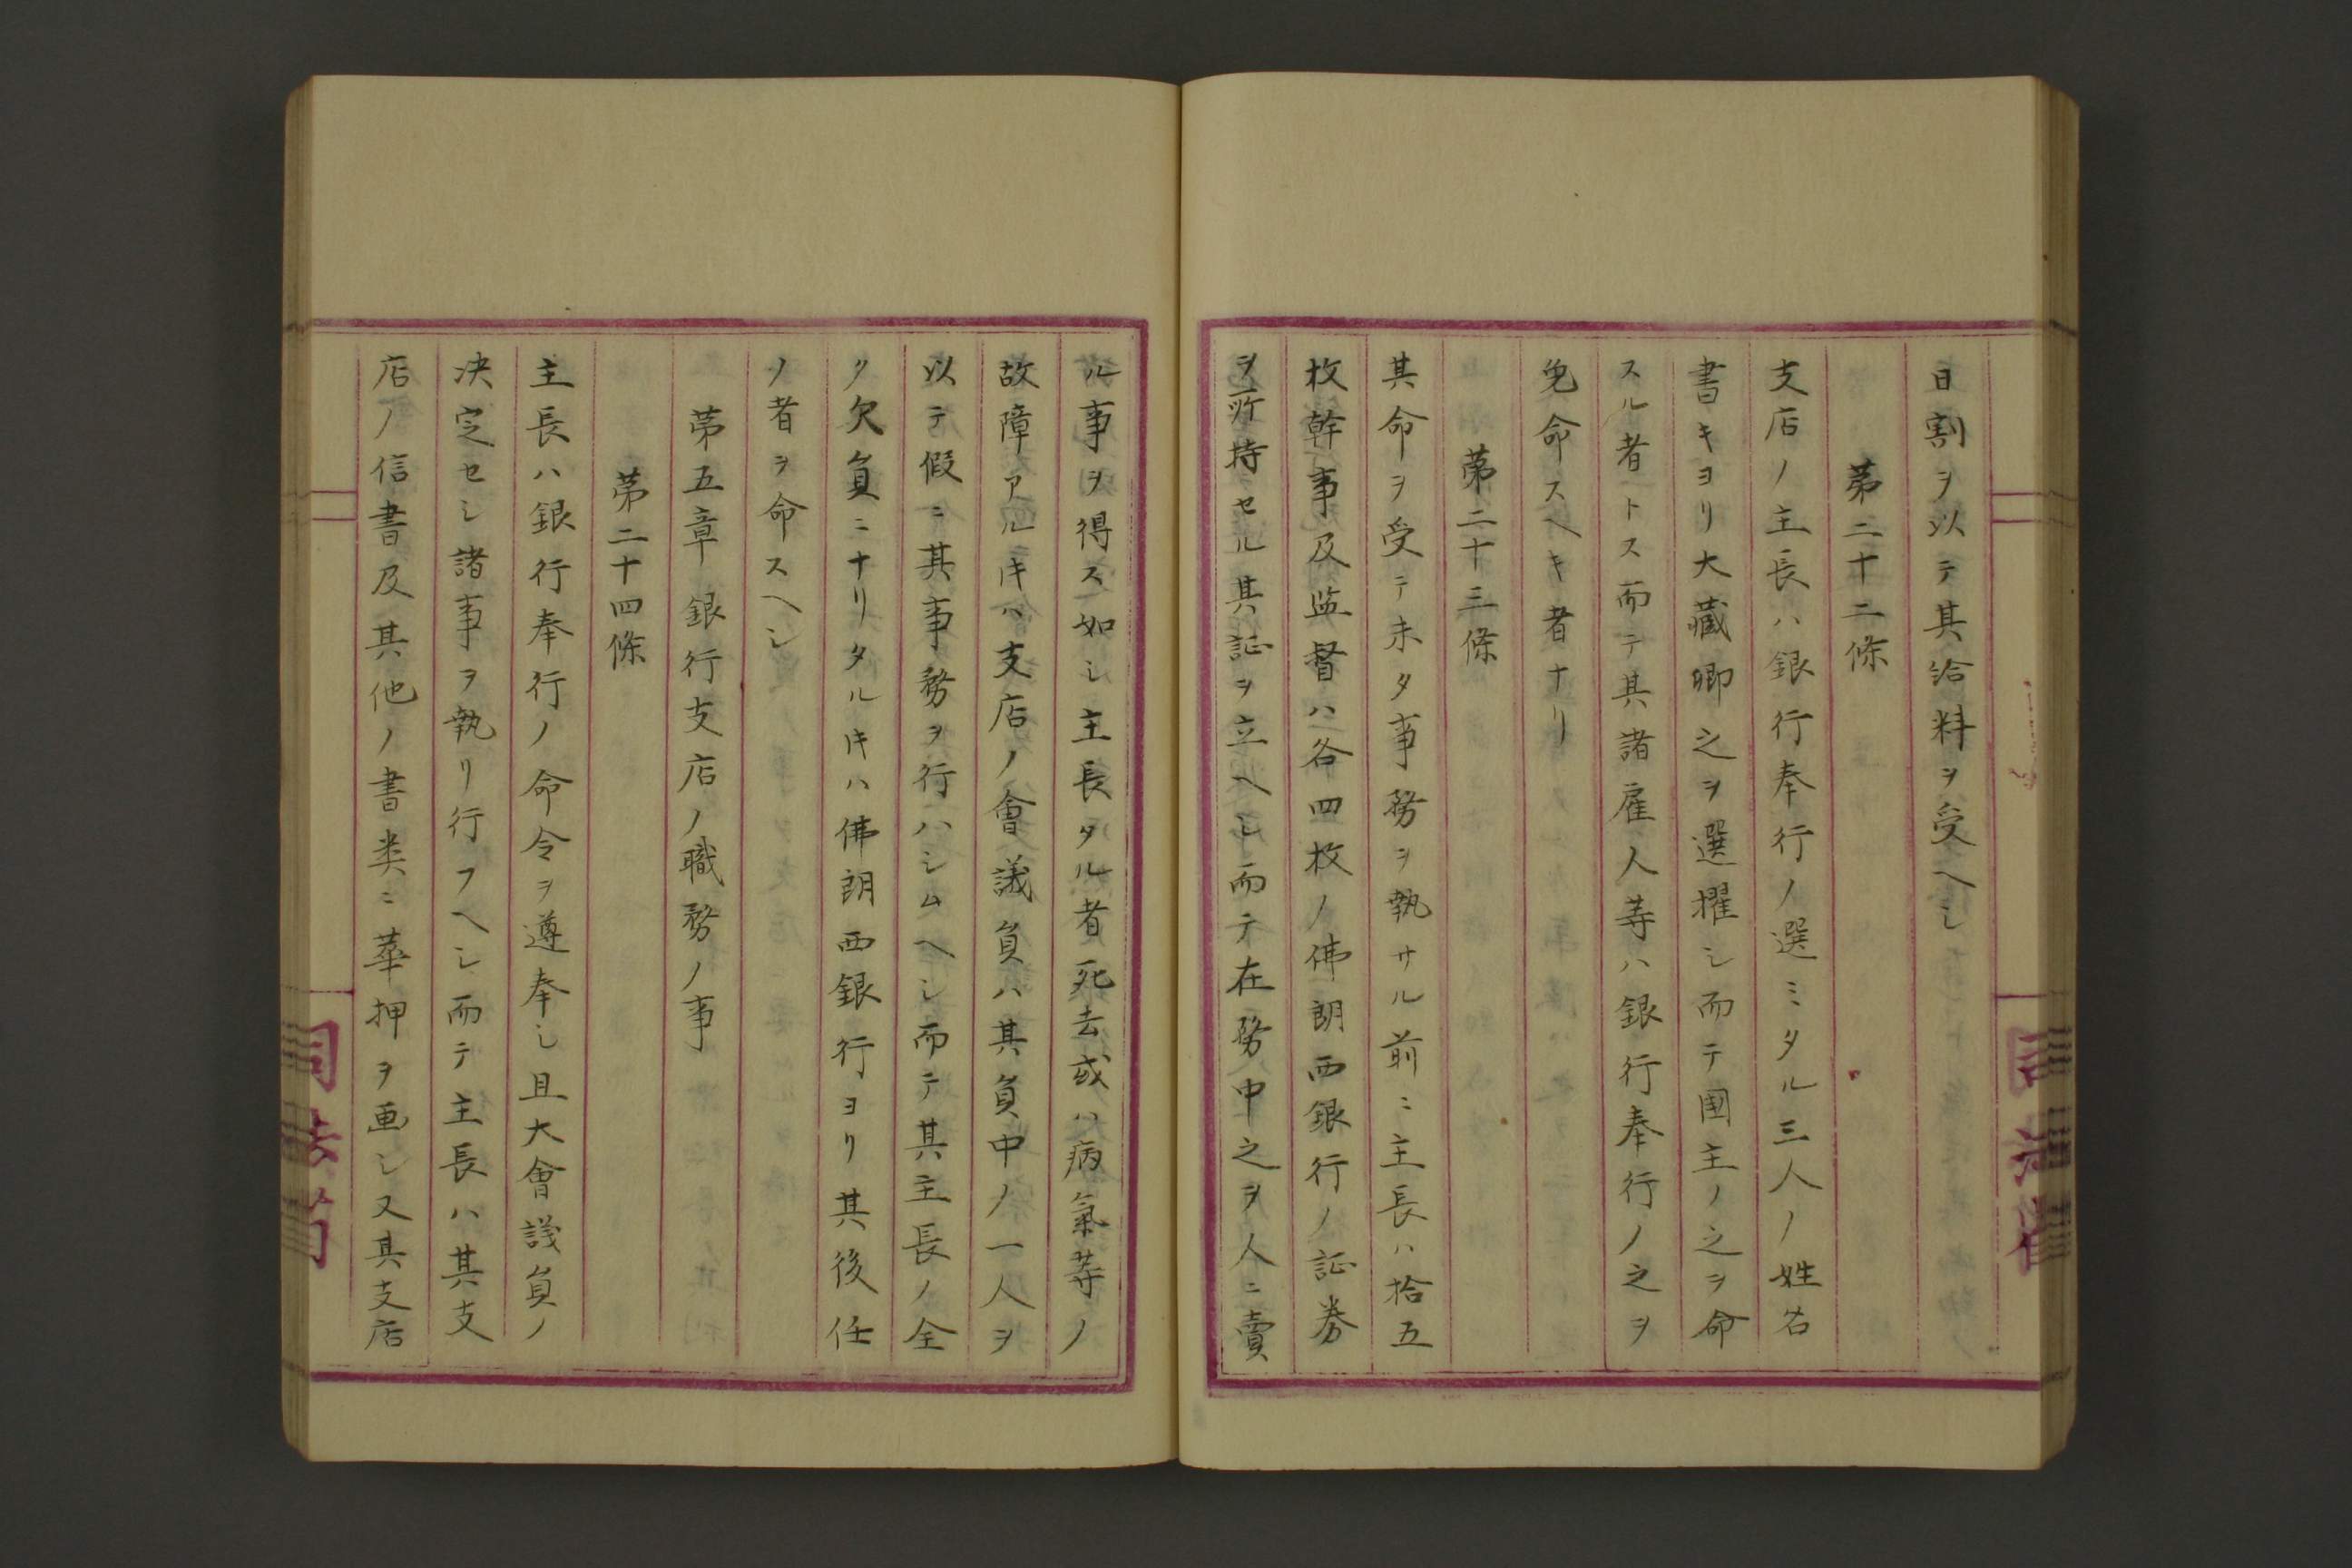 日割ヲ以テ其給料ヲ受ヘシ
第二十二條
支店ノ主長ハ銀行奉行ノ選ミタル三人ノ姓名
書キヨリ大藏卿之ヲ選擢シ而テ国主ノ之ヲ命
スル者トス而テ其諸雇人等ハ銀行奉行ノ之ヲ
免命スヘキ者ナリ
第二十三條
其命ヲ受テ未タ事務ヲ執サル前ニ主長ハ拾五
枚幹事及监督ハ各四枚ノ佛朗西銀行ノ証券
ヲ所持セル其証ヲ立ヘシ而テ在務中之ヲ人ニ賣
ル事ヲ得ス如シ主長タル者死去或ハ病氣等ノ
故障アル𪜈ハ支店ノ會議員ハ其員中ノ一人ヲ
以テ假ニ其事務ヲ行ハシムヘシ而テ其主長ノ全
ク欠員ニナリタル𪜈ハ佛朗西銀行ヨリ其後任
ノ者ヲ命スヘシ
第五章銀行支店ノ職務ノ事
第二十四條
主長ハ銀行奉行ノ命令ヲ遵奉シ且大會議員ノ
決定セシ諸事ヲ執リ行フヘシ而テ主長ハ其支
店ノ信書及其他ノ書类ニ華押ヲ画シ又其支店